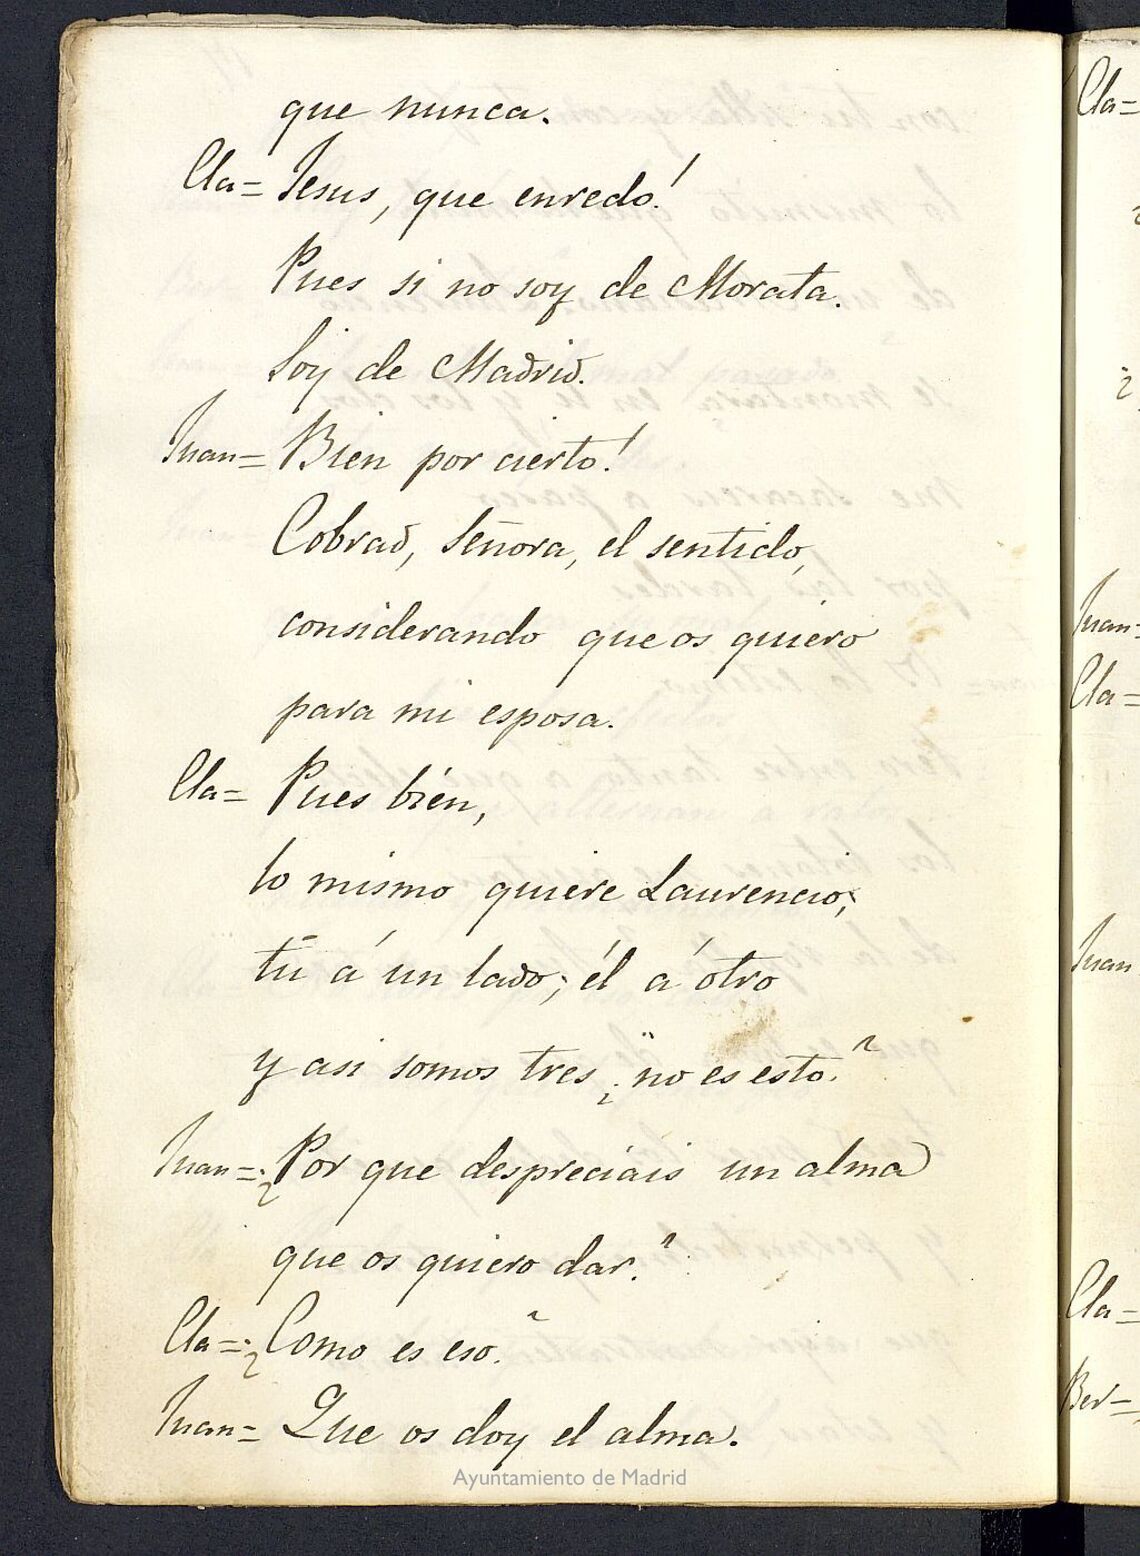 que nunca.
Cla= Jesus, que enredo!
Pues si no soy de Morata.
Soy de Madrid.
Juan= Bien por cierto!
Cobrad, Señora, el sentido,
considerando que os quiero
para mi esposa.
Cla= Pues bién,
lo mismo quiere Laurencio;
tú á un lado; él á otro
y asi somos tres ¿no es esto?
Juan= ¿Por que despreciais un alma
que os quiero dar?
Cla= ¿Como es eso?
Juan= Que os doy el alma.
Ayuntamiento de Madrid
Cla=
Juan=
Cla=
Juan
Cla=
Ber=